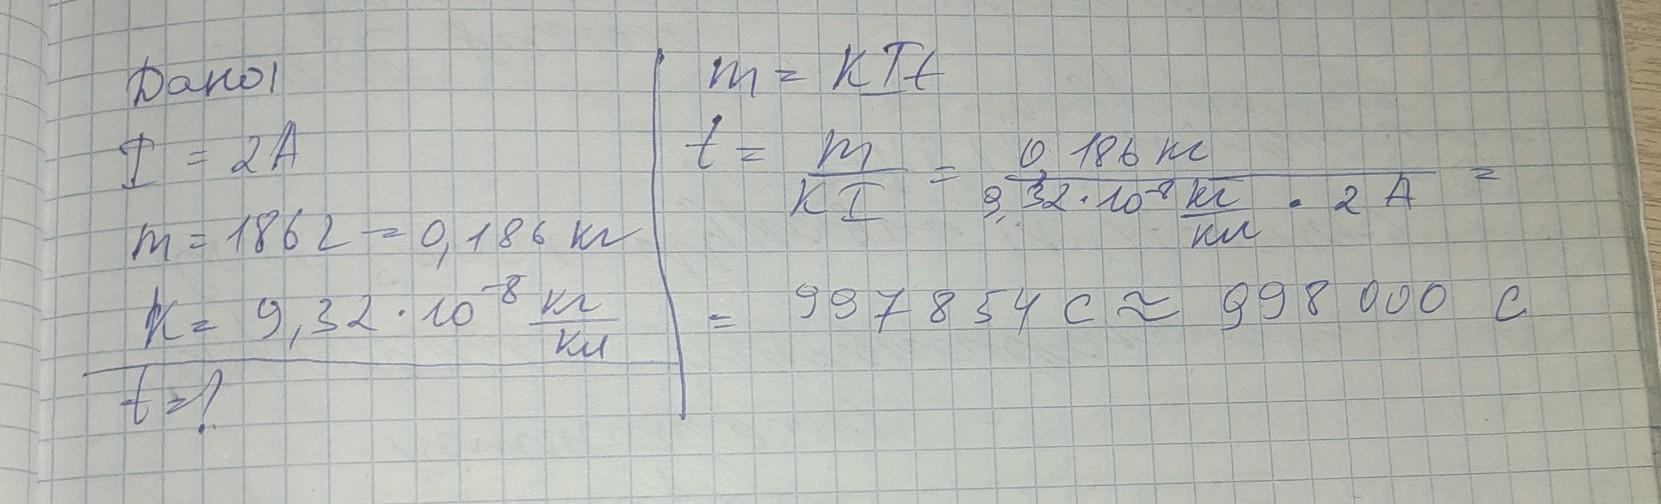 Дано:
I = 2А
m = 186г = 0,186 кг
K = 9,32 · 10⁻⁸ кг/кл
t = ?
m = KIt
t = m/KI = 0,186 кг / 9,32 · 10⁻⁸ кг/кл · 2 А =
= 997854 с ≈ 998 000 с